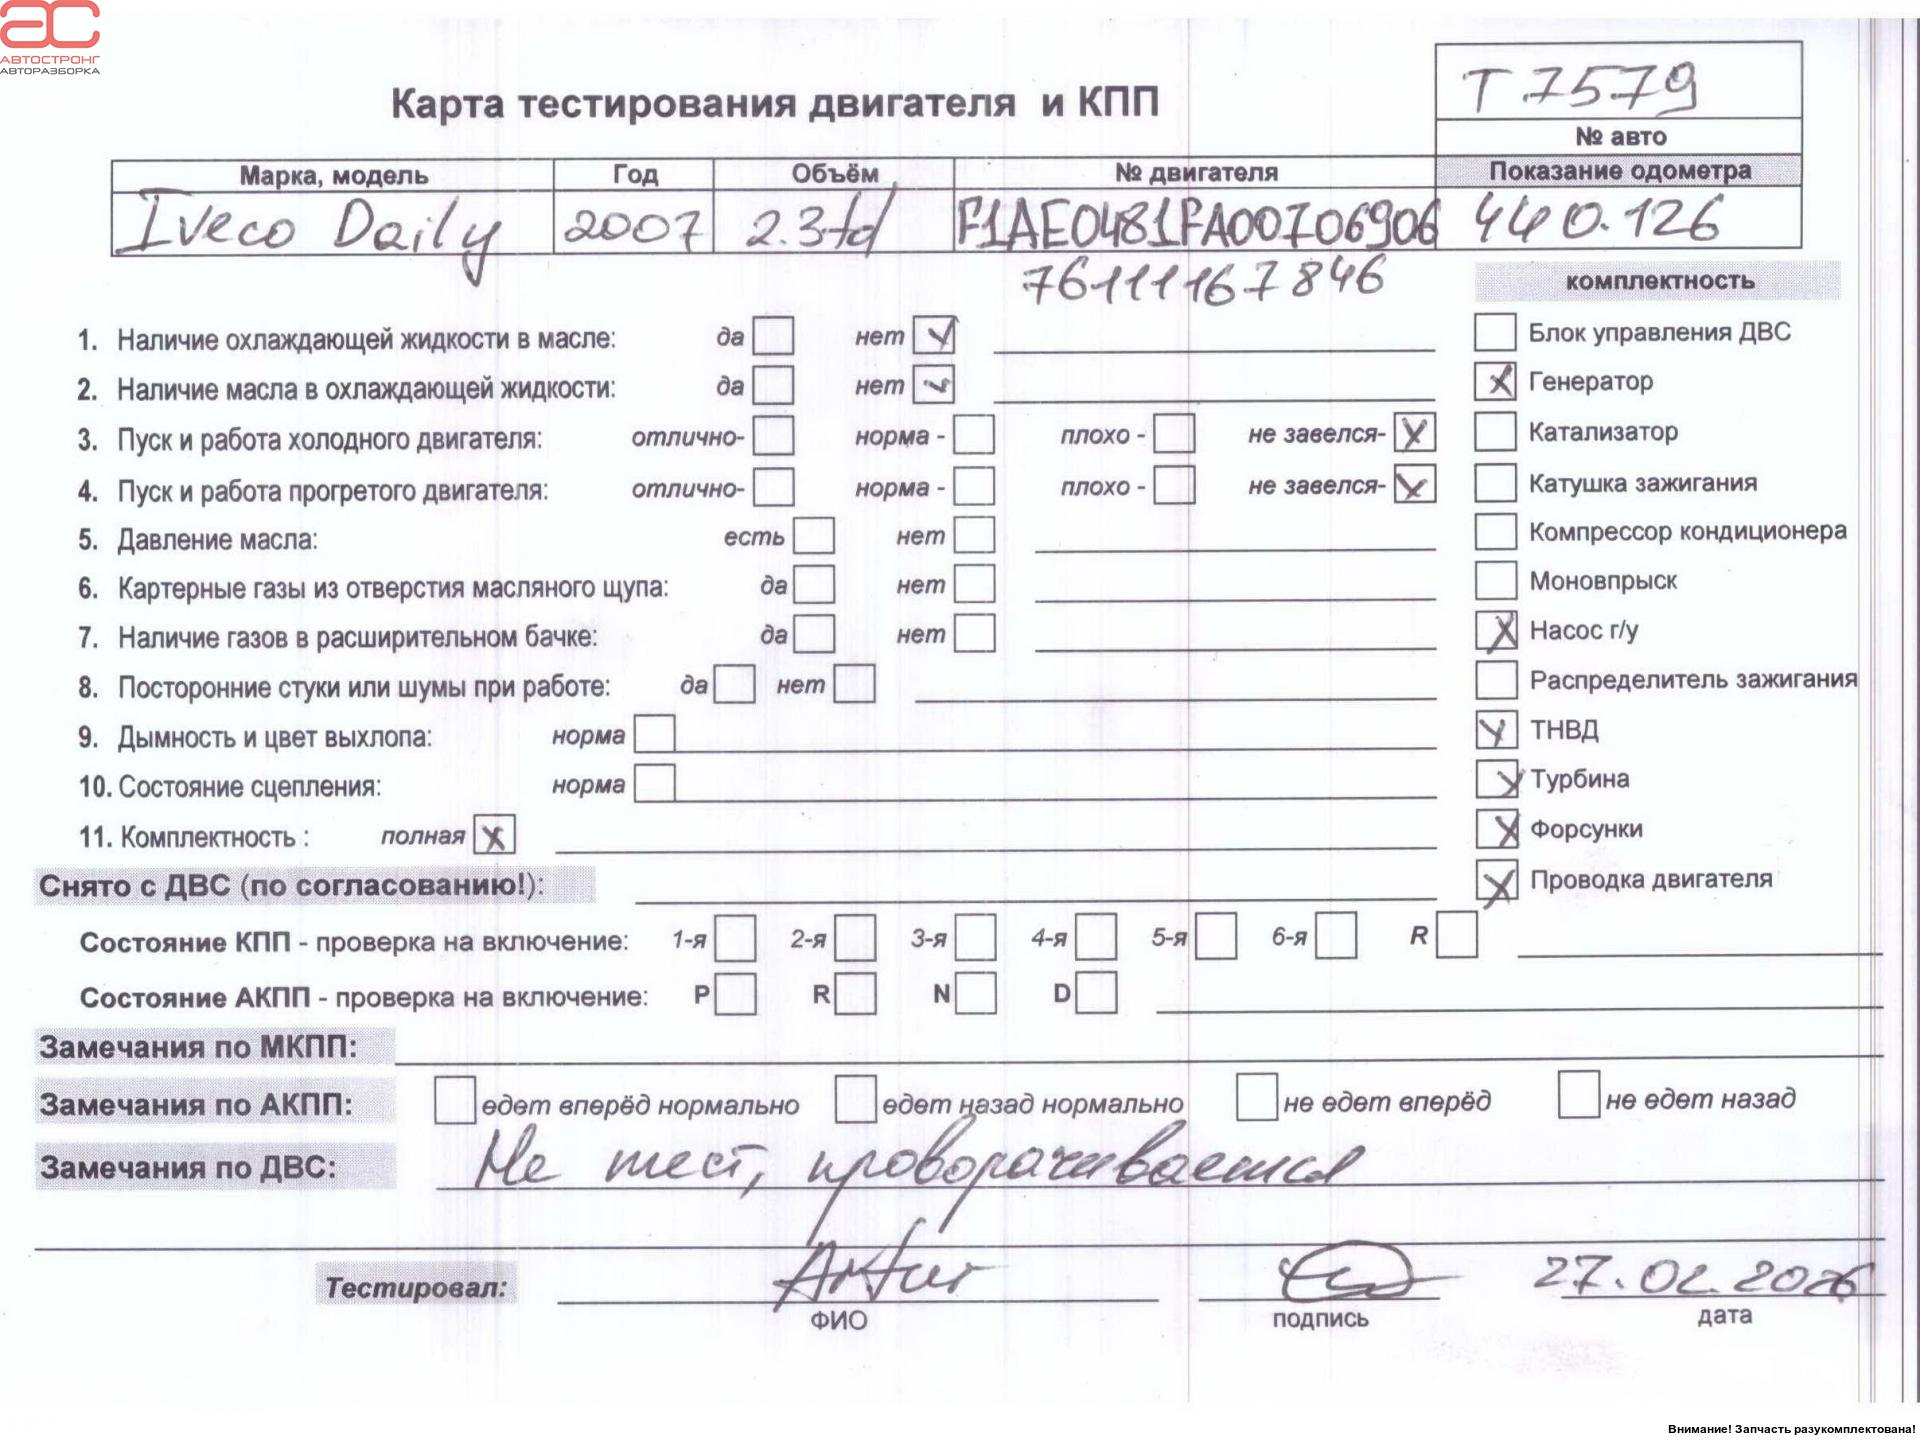 АС
АВТОСТРОНГ
АВТОРАЗБОРКА
Карта тестирования двигателя и КПП
Т 7579
№ авто
Марка, модель Год Объём № двигателя Показание одометра
Iveco Daily 2007 2.3td F1AE0481FA00706906 440.126
76111167846
комплектность
1. Наличие охлаждающей жидкости в масле: да нет Блок управления ДВС
2. Наличие масла в охлаждающей жидкости: да нет Генератор
3. Пуск и работа холодного двигателя: отлично- норма - плохо - не завелся- Катализатор
4. Пуск и работа прогретого двигателя: отлично- норма - плохо - не завелся- Катушка зажигания
5. Давление масла: есть нет Компрессор кондиционера
6. Картерные газы из отверстия масляного щупа: да нет Моновпрыск
7. Наличие газов в расширительном бачке: да нет Насос г/у
8. Посторонние стуки или шумы при работе: да нет Распределитель зажигания
9. Дымность и цвет выхлопа: норма ТНВД
10. Состояние сцепления: норма Турбина
11. Комплектность : полная Форсунки
Снято с ДВС (по согласованию!): Проводка двигателя
Состояние КПП - проверка на включение: 1-я 2-я 3-я 4-я 5-я 6-я R
Состояние АКПП - проверка на включение: P R N D
Замечания по МКПП:
Замечания по АКПП: едет вперёд нормально едет назад нормально не едет вперёд не едет назад
Замечания по ДВС: Не тест, проворачивается
Тестировал: 27.02.2026
ФИО подпись дата
Внимание! Запчасть разукомплектована!